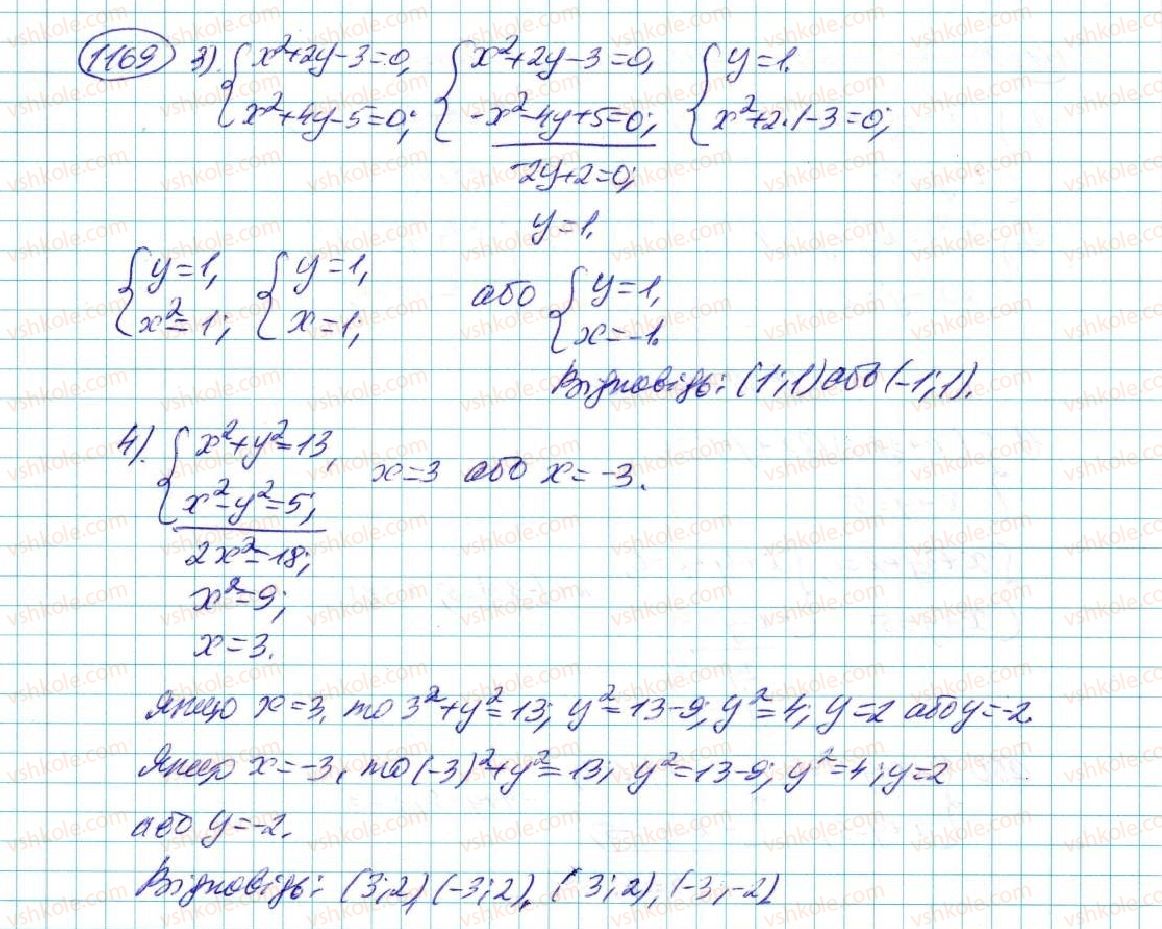 1169 3) { x²+2y-3=0, { x²+2y-3=0, { y=1.
x²+4y-5=0; -x²-4y+5=0; x²+2·1-3=0;
-2y+2=0;
y=1.
{ y=1, { y=1, або { y=1,
x²=1; x=1; x=-1.
Відповідь: (1;1) або (-1;1).
4). { x²+y²=13, x=3 або x=-3.
x²-y²=5;
2x²=18;
x²=9;
x=3.
Якщо x=3, то 3²+y²=13; y²=13-9; y²=4; y=2 або y=-2.
Якщо x=-3, то (-3)²+y²=13; y²=13-9; y²=4; y=2
або y=-2.
Відповідь: (3;2) (-3;2), (3;2), (-3;-2)
vshkole.com